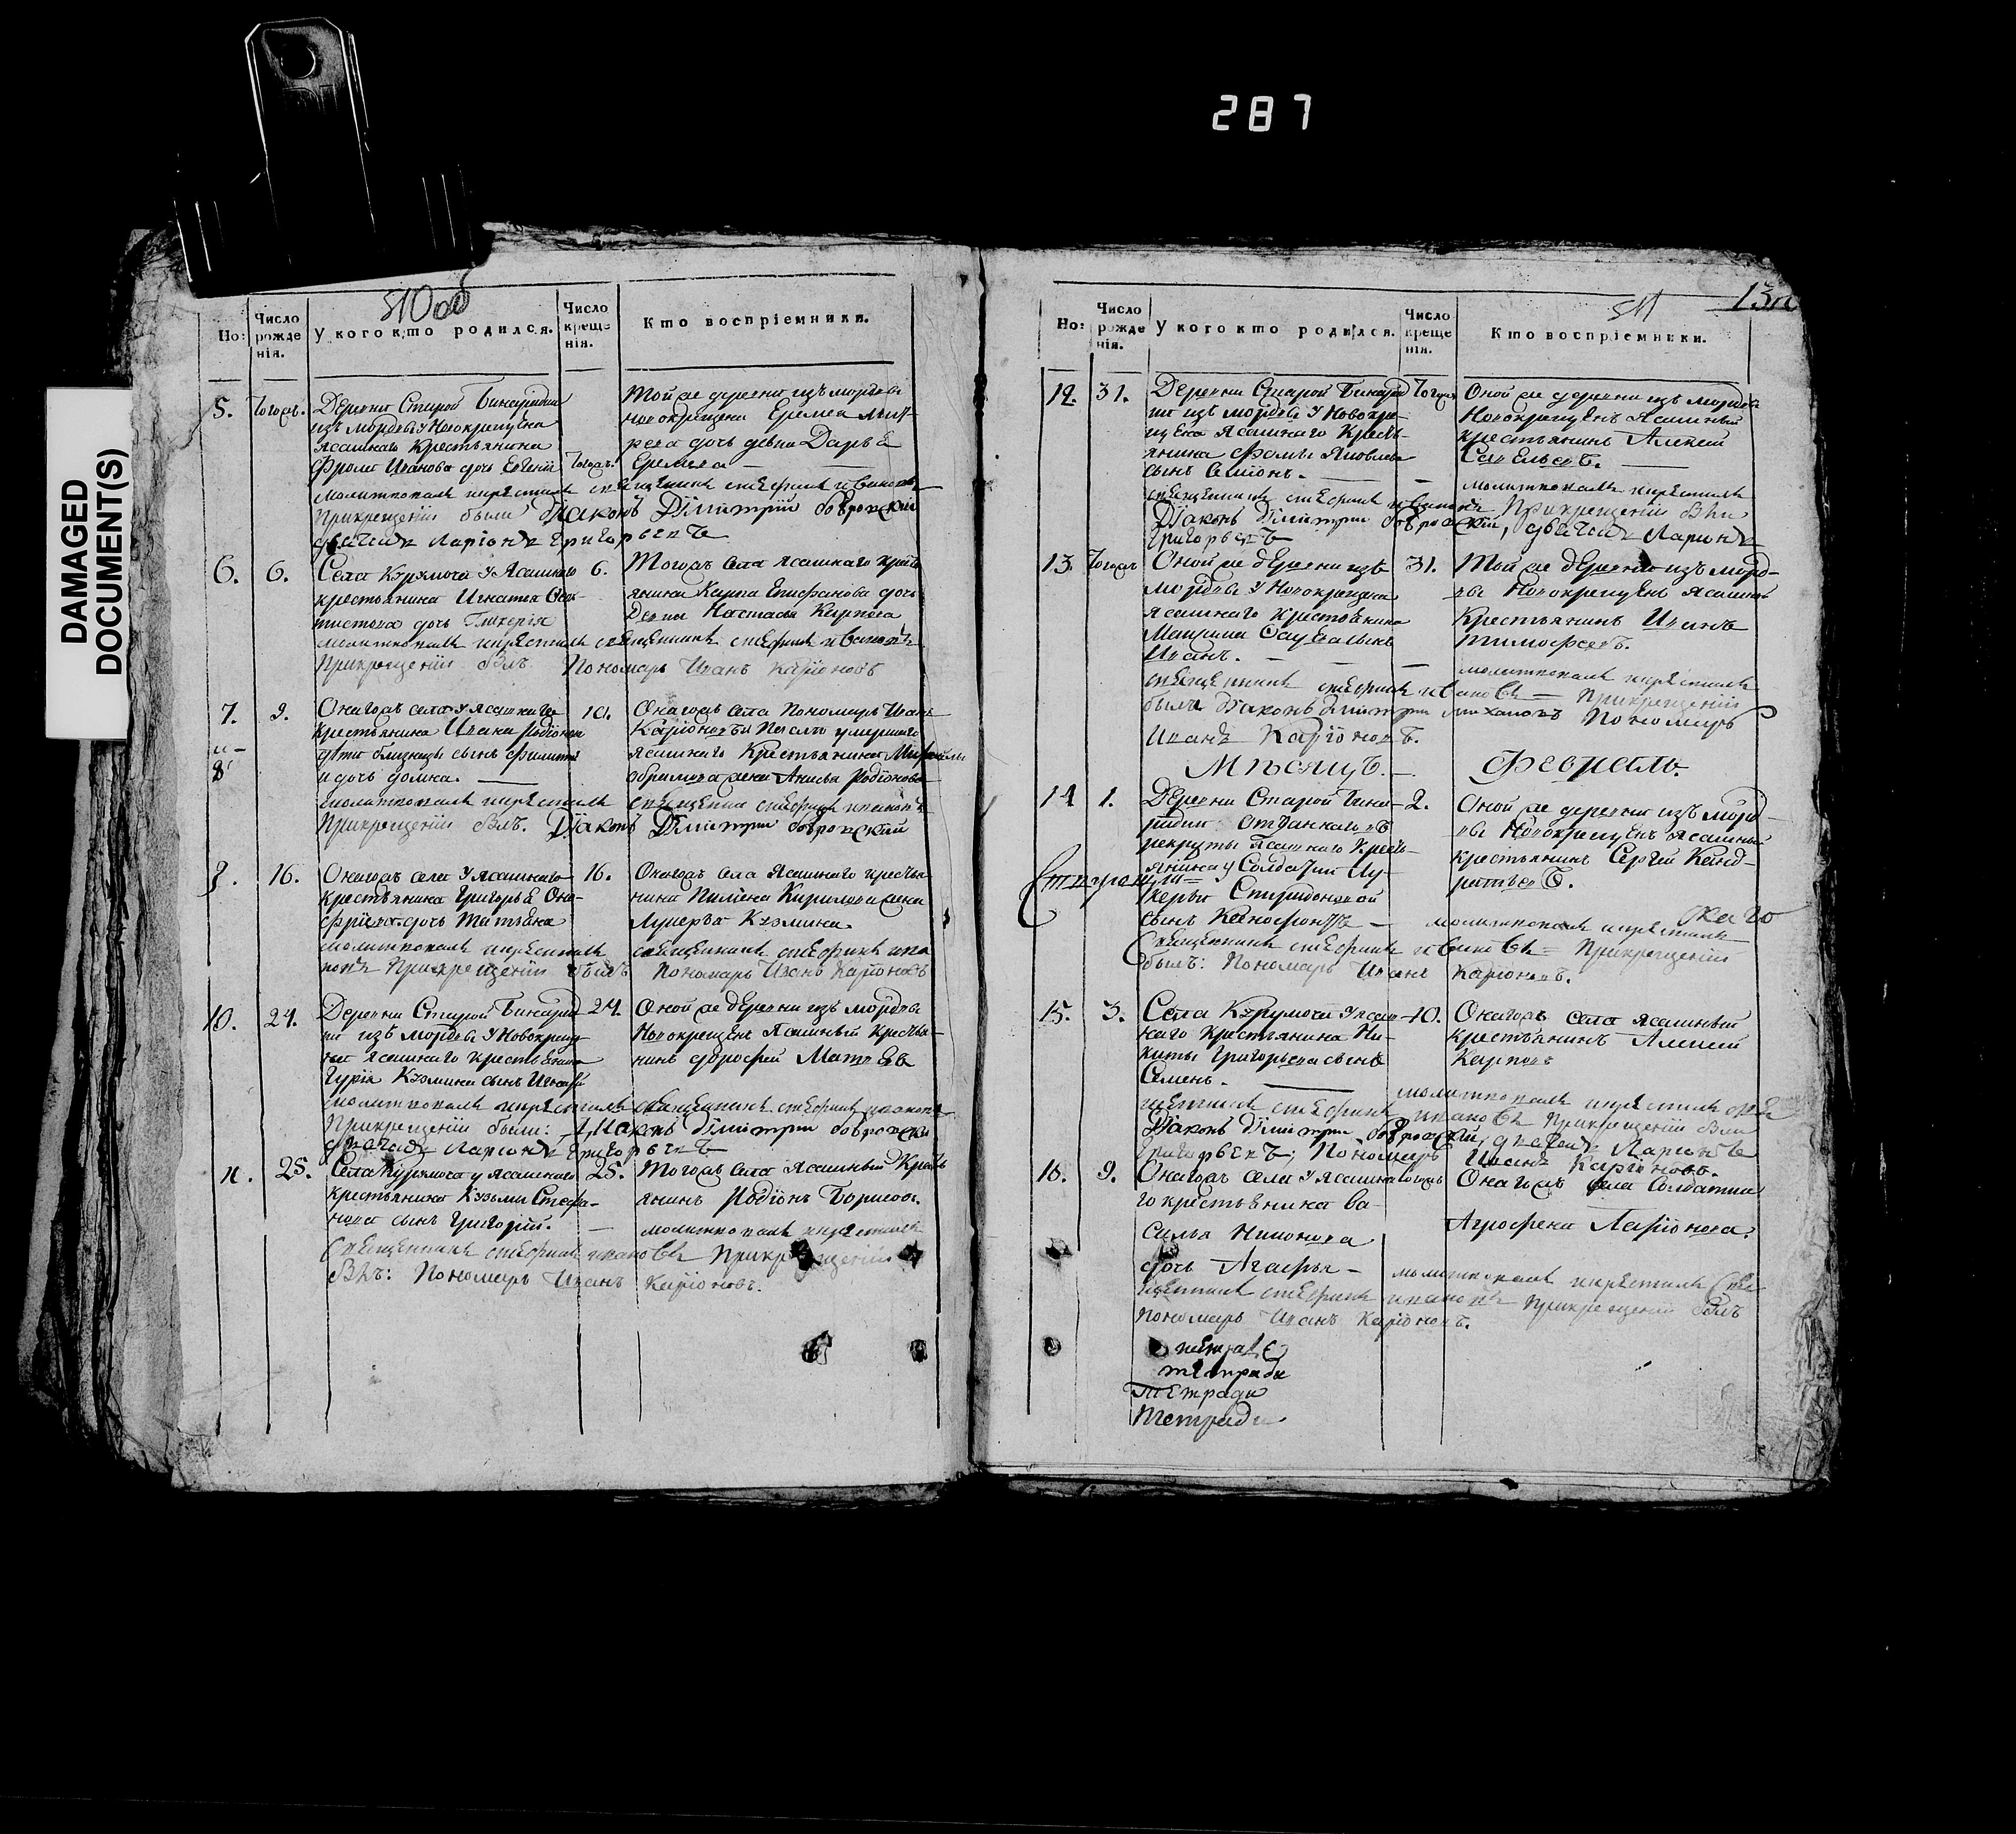 287
DAMAGED
DOCUMENT(S)
510об
Но:
Число рожденія.
У кого кто родился.
Число крещенія.
Кто воспріемники.
5. Тогожъ.
Деревни Старой Бинарадки
изъ мордвы у Новокрещена
ясашнаго Крестьянина
Фрола Иванова дочь Евгенія
Тогожъ.
Той же деревни изъ мордвы
новокрещена Еремея
дочь девка Дарья
Еремѣева
молитвовалъ и крестилъ священникъ Стефанъ Ивановъ
При крещеніи были Діаконъ Дімитрій Бобровскій
дьячокъ Ларіонъ Григорьевъ
6. 6.
Села Курумоча у Ясашнаго
крестьянина Игнатья
дочь Гликерія
6.
Тогожъ села ясашнаго кресть
янина Карпа Епифанова дочь
Девка Настасья Карпова
молитвовалъ и крестилъ священникъ Стефанъ Ивановъ
При крещеніи былъ Пономарь Иванъ Каріоновъ
7. 9.
и
8
Онагожъ села у ясашнаго
крестьянина Ивана Родіонова
дѣти близнецы сынъ Филиппъ
и дочь Домна.
10.
Онагожъ села Пономарь Иванъ
Каріоновъ и Посля умершаго
ясашнаго Крестьянина
Абрамова жена Анисья Родіонова
молитвовалъ и крестилъ священникъ Стефанъ Ивановъ
При крещеніи былъ. Діаконъ Дімитрій Бобровский
9. 16.
Онагожъ села у ясашнаго
крестьянина Григорья Оно-
фріева дочь Татьяна
16.
Онагожъ села ясашнаго крестья
нина Пимена Кирилова жена
Лукерья Кузмина
молитвовалъ и крестилъ священникъ Стефанъ Ива
новъ При крещеніи былъ Пономарь Иванъ Каріоновъ
10. 24.
Деревни Старой Бинарад-
ки изъ мордвы у Новокреще
на ясашнаго крестьянина
Гурія Кузмина сынъ Игнатій
24.
Оной же деревни изъ мордвы
Новокрещенъ Ясашный Крестья
нинъ Дорофей Матвѣевъ
молитвовалъ и крестилъ священникъ Стефанъ Ивановъ
При крещеніи были: Діаконъ Дімитрій Бобровски
дьячокъ Ларіонъ Григорьевъ
11. 25.
Села Курумоча у ясашнаго
крестьянина Кузьмы Стефа-
нова сынъ Григорій.
25.
Тогожъ села ясашный Кресть
янинъ Родіонъ Борисовъ.
молитвовалъ и крестилъ
Священникъ Стефанъ Ивановъ При крещеніи
Былъ: Пономарь Иванъ Каріоновъ.
511
Но:
Число рожденія.
У кого кто родился.
Число крещенія.
Кто воспріемники.
12. 31.
Деревни Старой Бинарад
ки изъ мордвы у Новокре-
щена ясашнаго Кресть-
янина Фомы Яковлева
сынъ Симіонъ.
Тогожъ
Оной же деревни изъ мордвы
Новокрещенъ Ясашный
крестьянинъ Алексей
Савельевъ.
молитвовалъ и крестилъ
священникъ Стефанъ Ивановъ При крещеніи были
Діаконъ Дімитрій Бобровскій, дьячокъ Ларіонъ
Григорьевъ
13. Тогожъ
Оной же деревни изъ
мордвы у Новокрещена
ясашнаго крестьянина
сынъ
Иванъ.
31.
Той же деревни изъ морд-
вы Новокрещенъ ясашной
Крестьянинъ Иванъ
Тимофеевъ.
молитвовалъ и крестилъ
священникъ Стефанъ Ивановъ При крещеніи
были Діаконъ Дмитрій Михаловъ Пономарь
Иванъ Каріоновъ.
Мѣсяцъ. Февраль.
14 1.
Деревни Старой Бина-
радки отданнаго въ
рекруты Ясашнаго Кресть-
янина у Солдатки Лу-
керьи Спиридоновой
сынъ Ксенофонтъ
2.
Оной же деревни изъ морд-
вы Новокрещенъ ясашный
крестьянинъ Сергей Конд-
ратьевъ.
молитвовалъ и крестилъ
Священникъ Стефанъ Ивановъ При крещеніи
былъ: Пономарь Иванъ Каріоновъ.
15. 3.
Села Курумоча у ясаш-
наго Крестьянина Ни-
киты Григорьева сынъ
Семенъ.
10.
Онагожъ села ясашный
крестьянинъ Алексей
Карповъ
молитвовалъ и крестилъ свя
щенникъ Стефанъ Ивановъ При крещеніи были
Діаконъ Дімитрій Бобровскій, дьячокъ Ларіонъ
Григорьевъ; Пономарь Иванъ Каріоновъ.
16. 9.
Онагожъ села у ясашна
го крестьянина Ва-
силья Никонова
дочь Агафья
тогожъ
Онагожъ села Солдатка
Агрофена Ларіонова.
молитвовалъ и крестилъ Свя
щенникъ Стефанъ Ивановъ При крещеніи былъ
Пономарь Иванъ Каріоновъ.
тетради
Тетради
Тетради